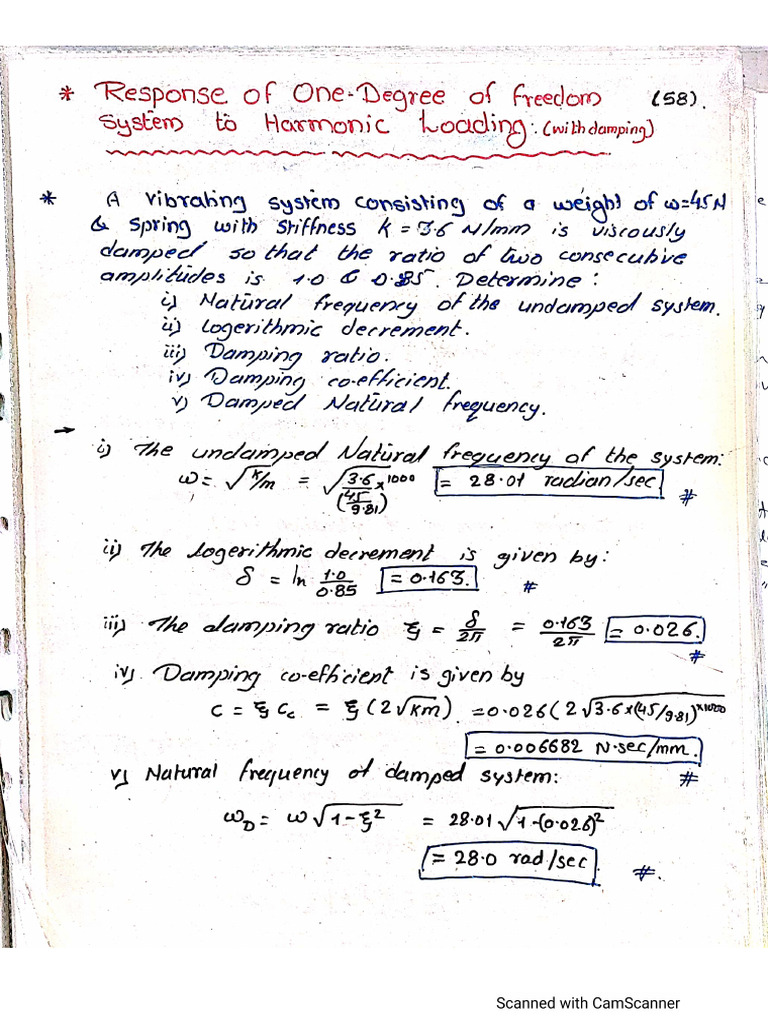 * Response of One-Degree of freedom (58).
System to Harmonic Loading: (with damping)
* A vibrating system consisting of a weight of w=45N
& spring with stiffness K = 3.6 N/mm is viscously
damped so that the ratio of two consecutive
amplitudes is 1.0 & 0.85. Determine:
i) Natural frequency of the undamped system.
ii) Logerithmic decrement.
iii) Damping ratio.
iv) Damping co-efficient.
v) Damped Natural frequency.
→ i) The undamped Natural frequency of the system:
ω = √k/m = √3.6×1000/(45/9.81) = 28.01 radian/sec #
ii) The logerithmic decrement is given by:
δ = ln 1.0/0.85 = 0.163. #
iii) The damping ratio ξ = δ/2π = 0.163/2π = 0.026. #
iv) Damping co-efficient is given by
C = ξ Cc = ξ (2√km) = 0.026(2√3.6×(45/9.81)×1000
= 0.006682 N.sec/mm. #
v) Natural frequency of damped system:
ωD = ω√1-ξ² = 28.01√1-(0.026)²
= 28.0 rad/sec #.
Scanned with CamScanner